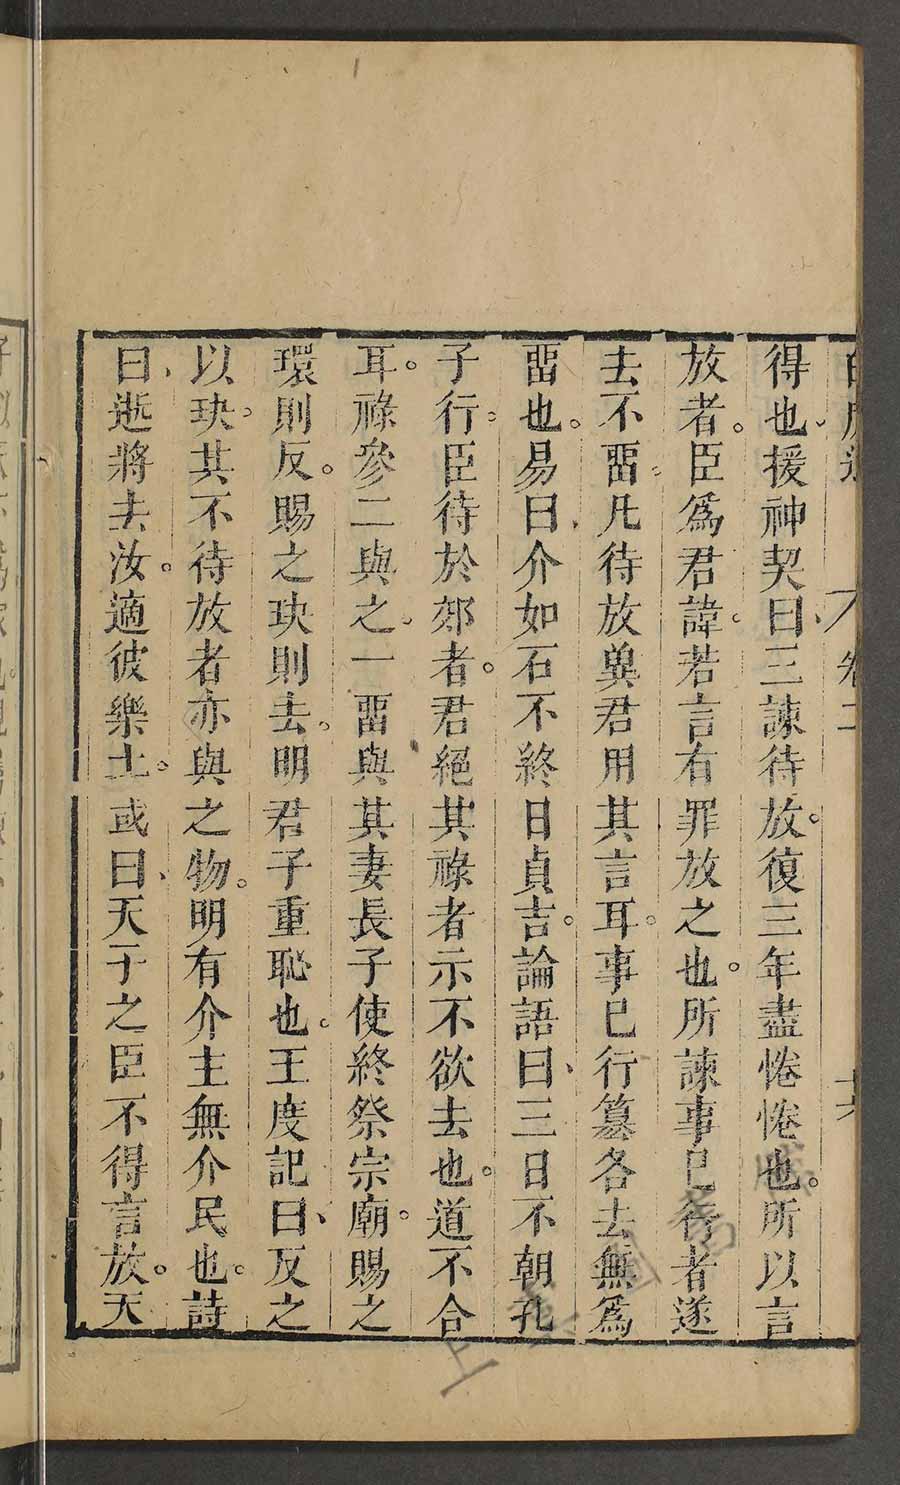 得也援神契曰三諫待放復三年盡惓惓也所以言
放者臣爲君諱若言有罪放之也所諫事已行者遂
去不畱凡待放兾君用其言耳事已行簒各去無爲
畱也易曰介如石不終日貞吉論語曰三日不朝孔
子行臣待於郊者君絕其祿者示不欲去也道不合
耳祿參二與之一畱與其妻長子使終祭宗廟賜之
環則反賜之玦則去明君子重恥也王度記曰反之
以玦其不待放者亦與之物明有介主無介民也詩
曰逝將去汝適彼樂土或曰天子之臣不得言放天